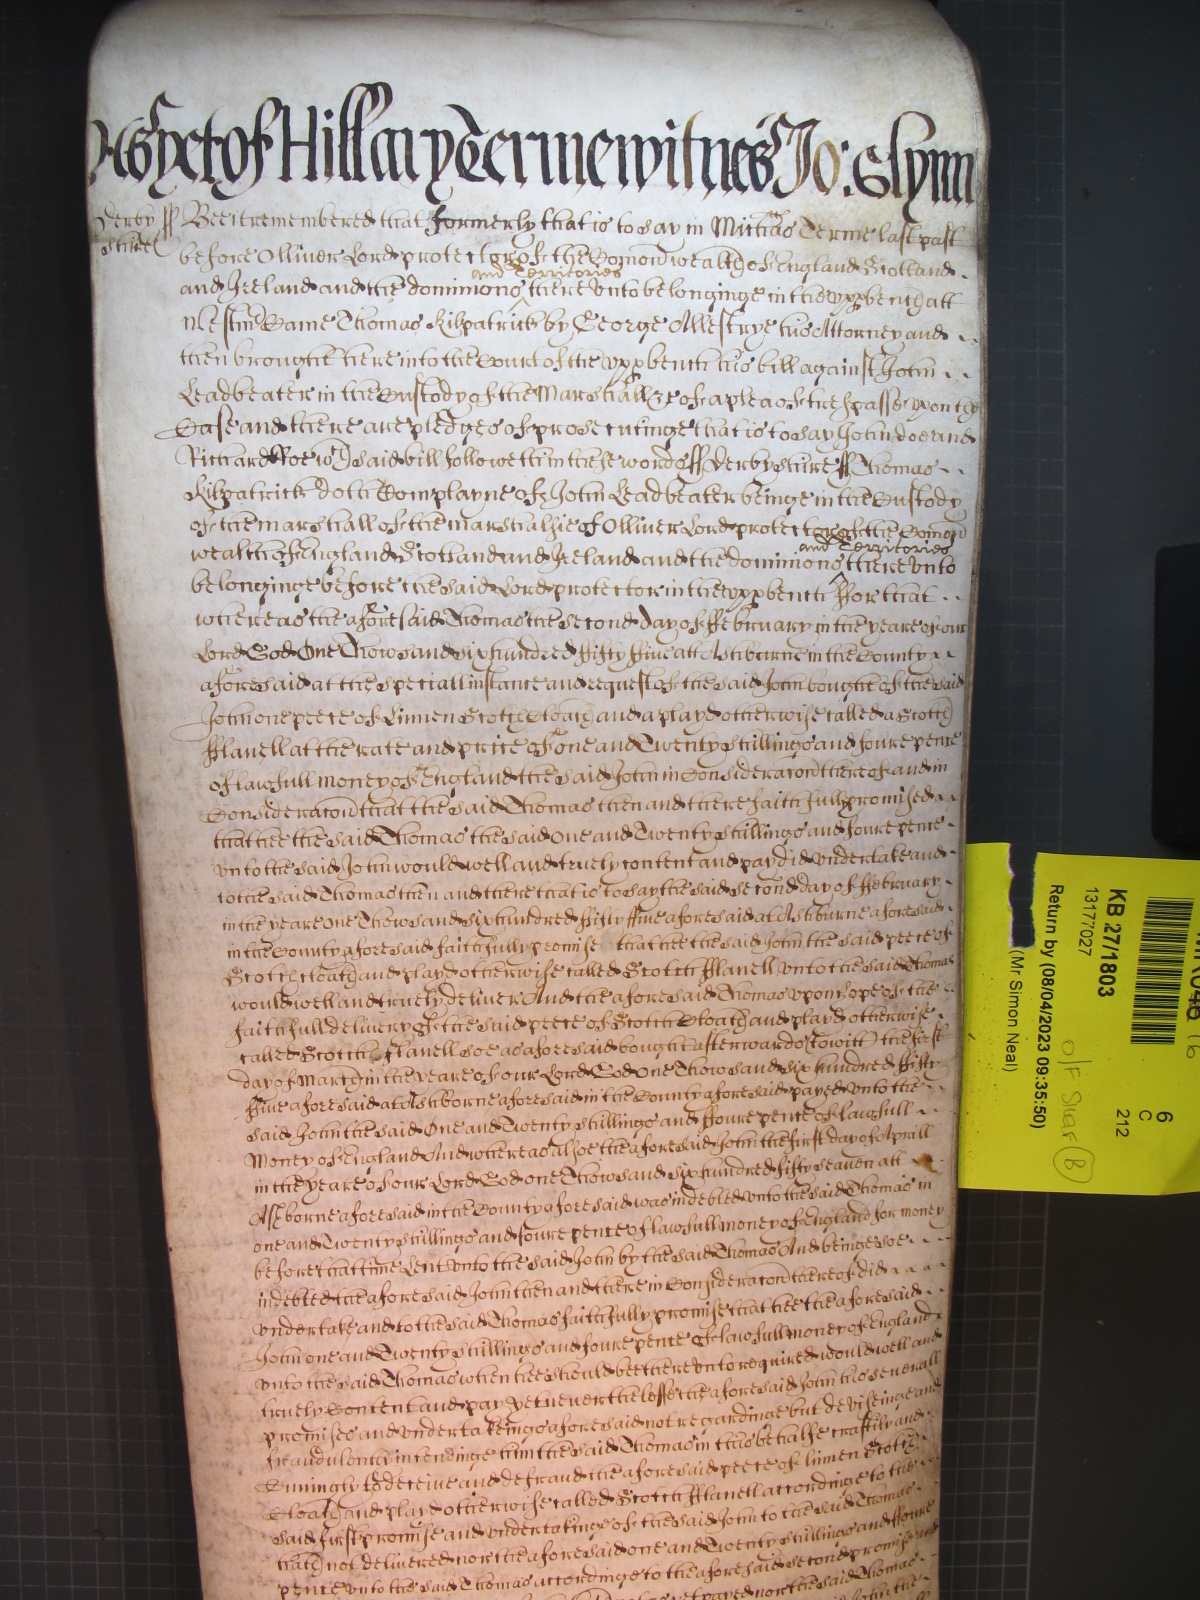 As yet of Hillary Terme witnes Jo: Glynn
Derby ss Bee it remembered that formerly that is to say in Mich'as Terme last past
shire
before Olliver Lord protector of the Comon wealth of England Scotland
and Territories
and Ireland and the dominions there unto belonginge in the upp bench att
Westm Came Thomas Kilpatrick by George Allestrye his Attorney and
then brought here into the Court of the upp bench his bill against John
Leadbeater in the Custody of the Marshall &c of a plea of trespasse upon the
Case and there are pledges of prosecutinge that is to say John doe and
Richard Roe wch said bill followeth in these words ss Derbyshire ss Thomas
Kilpatrick doth Complayne of John Leadbeater beinge in the Custody
of the marshall of the marshalsie of Olliver Lord protector of the Comon
and Territories
wealth of England Scotland and Ireland and the dominions there unto
belonginge before the said Lord protector in the upp bench ffor that
whereas the aforesaid Thomas the second day of ffebruary in the yeare of our
Lord God One Thowsand six hundred ffifty ffive att Ashburne in the County
aforesaid at the speciall instance and request of the said John bought of the said
John one peece of Linnen Scotch Cloath and a playd otherwise called a Scotch
fflanell at the rate and price of one and Twenty shillings and foure pence
of lawfull money of England the said John in Consideracon thereof and in
Consideracon that the said Thomas then and there faithfully promised
that hee the said Thomas the said One and Twenty shillings and foure pence
unto the said John would well and truely content and pay did undertake and
to the said Thomas then and there that is to say the said second day of ffebruary
in the yeare One Thowsand six hundred ffifty ffive aforesaid at Ashburne aforesaid
in the County aforesaid faithfully promise that hee the said John the said peece of
Scotch cloath and playd otherwise called Scotch fflanell unto the said Thomas
would well and truely deliver And the aforesaid Thomas upon hope of the
faithfull delivery of the said peece of Scotch Cloath and playd otherwise
called Scotch fflanell soe as aforesaid bought afterwards (to witt) the first
day of March in the yeare of our Lord God One Thowsand six hundred ffifty
ffive aforesaid at Ashborne aforesaid in the County aforesaid payed unto the
said John the said One and Twenty shillings and ffoure pence of lawfull
Money of England And whereas alsoe the aforesaid John the first day of Aprill
in the yeare of our Lord God one Thowsand six hundred fifty seaven att
Asborne aforesaid in the County aforesaid was indebted unto the said Thomas in
one and Twenty shillings and foure pence of lawfull money of England for money
before that time Lent unto the said John by the said Thomas And beinge soe
indebted the aforesaid John then and there in Consideracon thereof did
undertake and to the said Thomas faithfully promise that hee the aforesaid
John one and Twenty shillings and foure pence of lawfull money of England
unto the said Thomas when hee should bee there unto required would well and
truely Content and pay Yet neverthelesse the aforesaid John his severall
promises and undertakeings aforesaid not regardinge but deviseinge and
fraudulently intendinge him the said Thomas in this behalfe craftily and
Cuningly to deceive and defraud the aforesaid peece of linnen Scotch
Cloath and playd otherwise called Scotch fflanell accordinge to the
said first promise and undertakinge of the said John to the said Thomas
hath not delivered nor the aforesaid one and Twenty shillings and ffoure
pence unto the said Thomas accordinge to the aforesaid second promise and
KB 27/1803
13177027
Return by (08/04/2023 09:35:50)
(Mr Simon Neal)
6
C
212
O/F Shar B